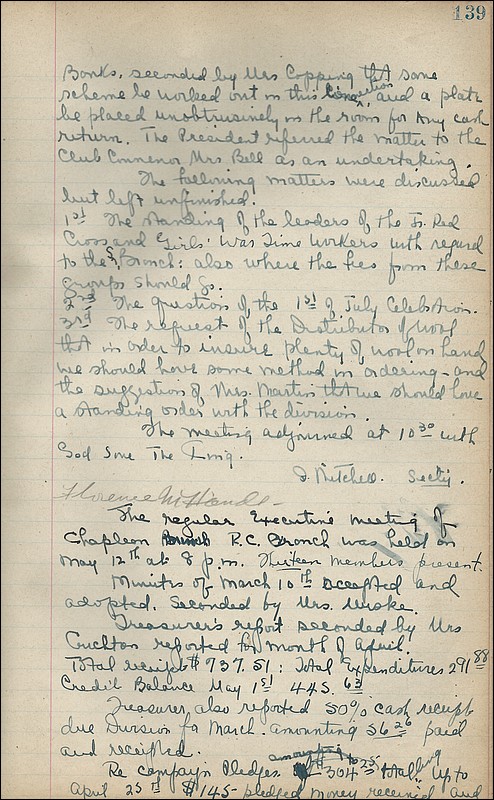 139
Banks, seconded by Mrs Copping that some
scheme be worked out in this connection, and a plate
be placed unobtrusively in the room for any cash
return. The President referred the matter to the
Club Convenor Mrs. Bell as an undertaking.
The following matters were discussed
but left unfinished.
1st The standing of the leaders of the Jr. Red
Cross and Girls' War Time Workers with regard
to the Sr. Branch: also where the fees from these
groups should go.
2nd The question of the 1st of July Celebration.
3rd The request of the Distributor of wool
that in order to insure plenty of wool on hand
we should have some method in ordering - and
the suggestion of Mrs. Martin that we should have
a standing order with the division.
The meeting adjourned at 10 30 with
God Save The King.
J. Mitchell. Secty.
Florence
The regular Executive meeting of
Chapleau Branch R.C. Branch was held on
May 12th at 8 p.m. Thirteen members present.
Minutes of March 10th accepted and
adopted. Seconded by Mrs.
Treasurer's report seconded by Mrs
Crichton reported for month of April.
Total receipts $737.51: Total Expenditures 291 88
Credit Balance May 1st 445. 63
Treasurer, also reported 50% cash receipts
due Division for March. amounting $6 26 paid
and receipted.
Re Campaign Pledges amounting to $304 25 totalling up to
April 25th $145- pledged money received and